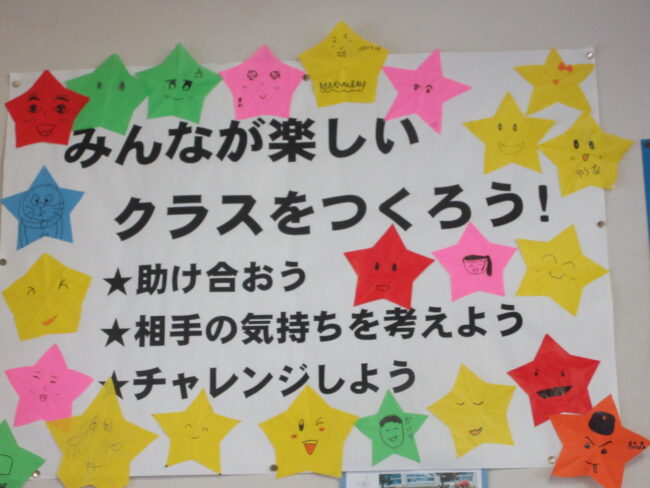 みんなが楽しい
クラスをつくろう!
★助け合おう
★相手の気持ちを考えよう
★チャレンジしよう